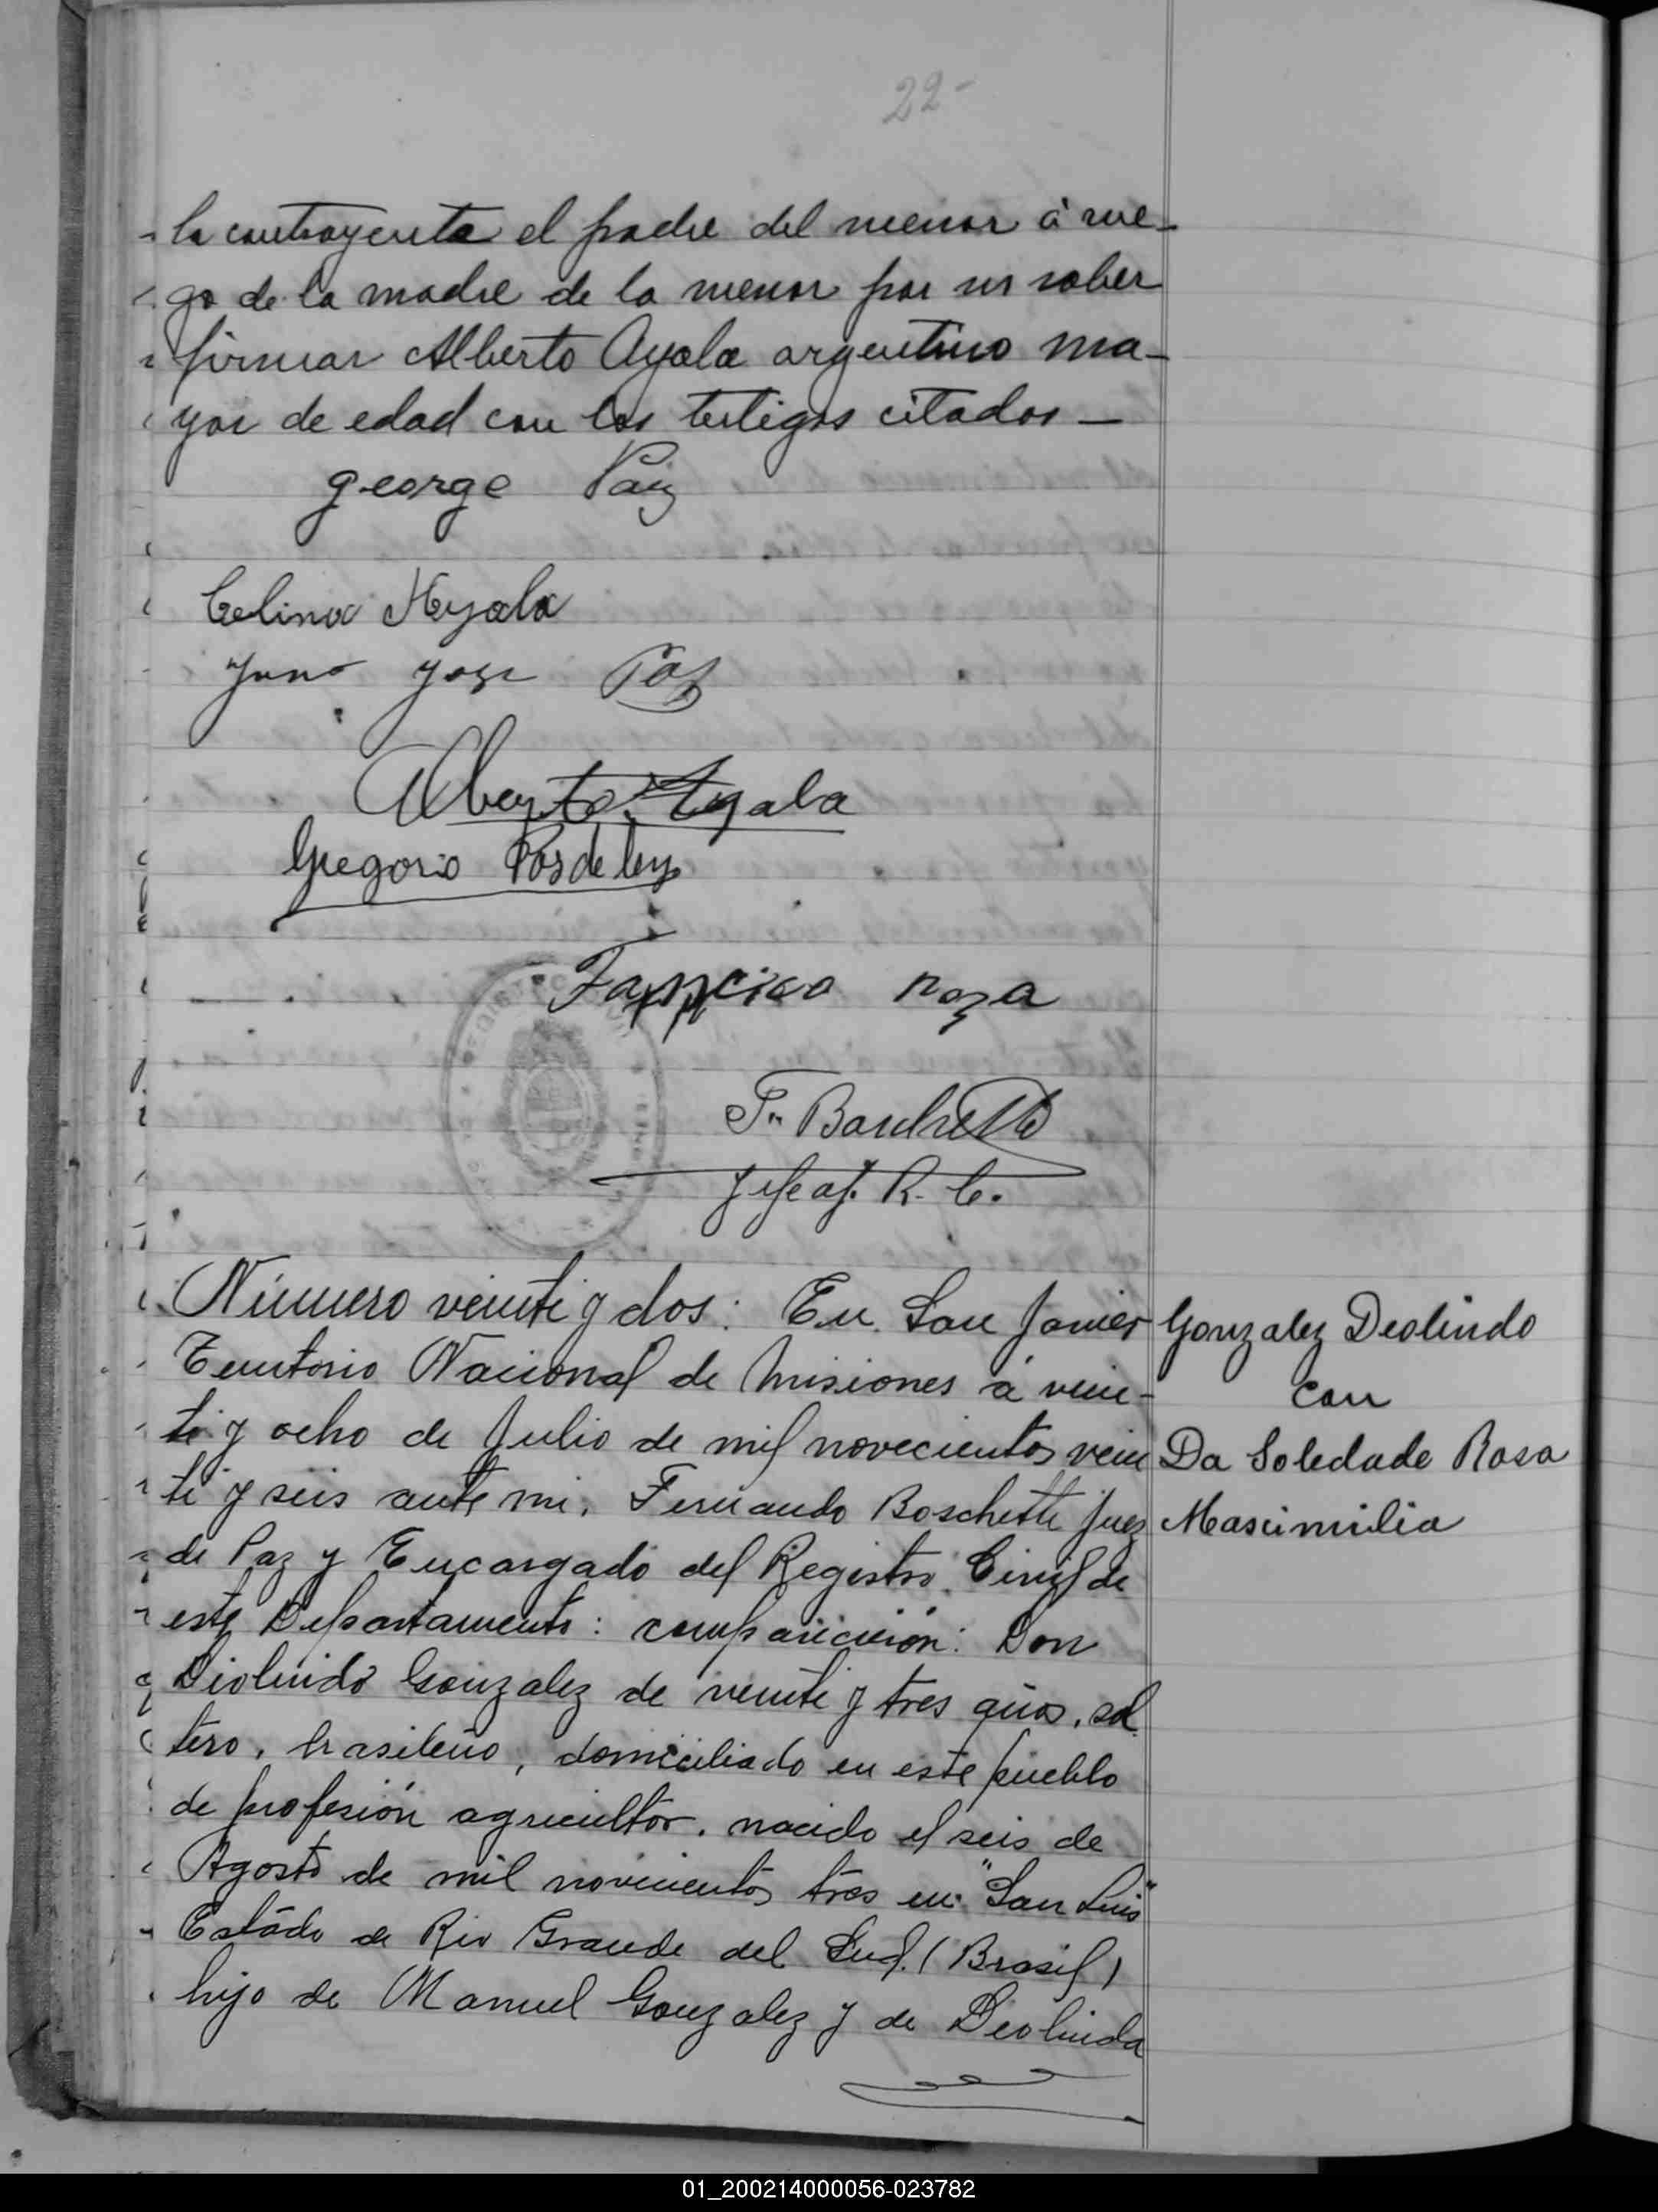 22-
la contrayente el padre del menor á rue-
go de la madre de la menor por no saber
firmar Alberto Ayala argentino ma-
yor de edad con los testigos citados —
george Paiz
Celina Ayala
Juan Jose Paz
Alberto Ayala
Gregorio Posdeley
Francisco roza
F. Boschetti
Jefe of. R. C.
Número veinte y dos: En San Javier
Territorio Nacional de Misiones á vein-
te y ocho de Julio de mil novecientos vein
te y seis ante mi, Fernando Boschetti Juez
de Paz y Encargado del Registro Civil de
este Departamento: comparicieron: Don
Diolindo Gonzalez de veinte y tres años, sol
tero, brasileño, domiciliado en este pueblo
de profesión agricultor, nacido el seis de
Agosto de mil novecientos tres en "San Luis"
Estado de Rio Grande del Sud. (Brasil)
hijo de Manuel Gonzalez y de Deolinda
Gonzalez Deolindo
con
Da Soledade Rosa
Masimilia
01_200214000056-023782